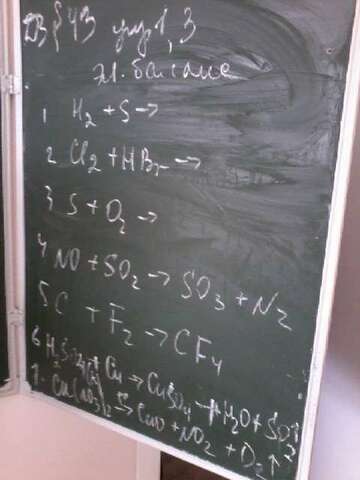 ДЗ §43 упр 1,3
эл. баланс
1 H₂ + S →
2 Cl₂ + HBr →
3 S + O₂ →
4 NO + SO₂ → SO₃ + N₂
5 C + F₂ → CF₄
6 H₂SO₄ + Cu → CuSO₄ + H₂O + SO₂↑
7. Cu(NO₃)₂ → CuO + NO₂ + O₂↑